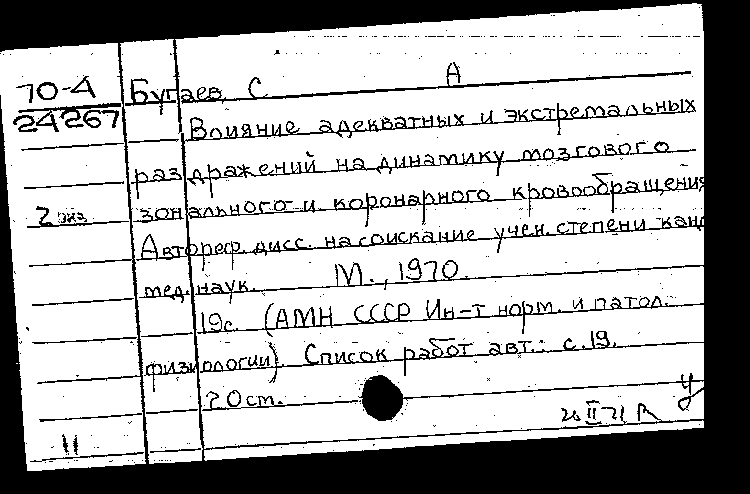 70-4 Бугаев, С. А
24267 Влияние адекватных и экстремальных
раздражений на динамику мозгового
2 экз зонального и коронарного кровообращения
Автореф. дисс. на соискание учен. степени канд
мед. наук. М., 1970.
19с. (АМН СССР Ин-т норм. и патол.
физиологии). Список работ авт.: с.19.
20см.
11 II 71